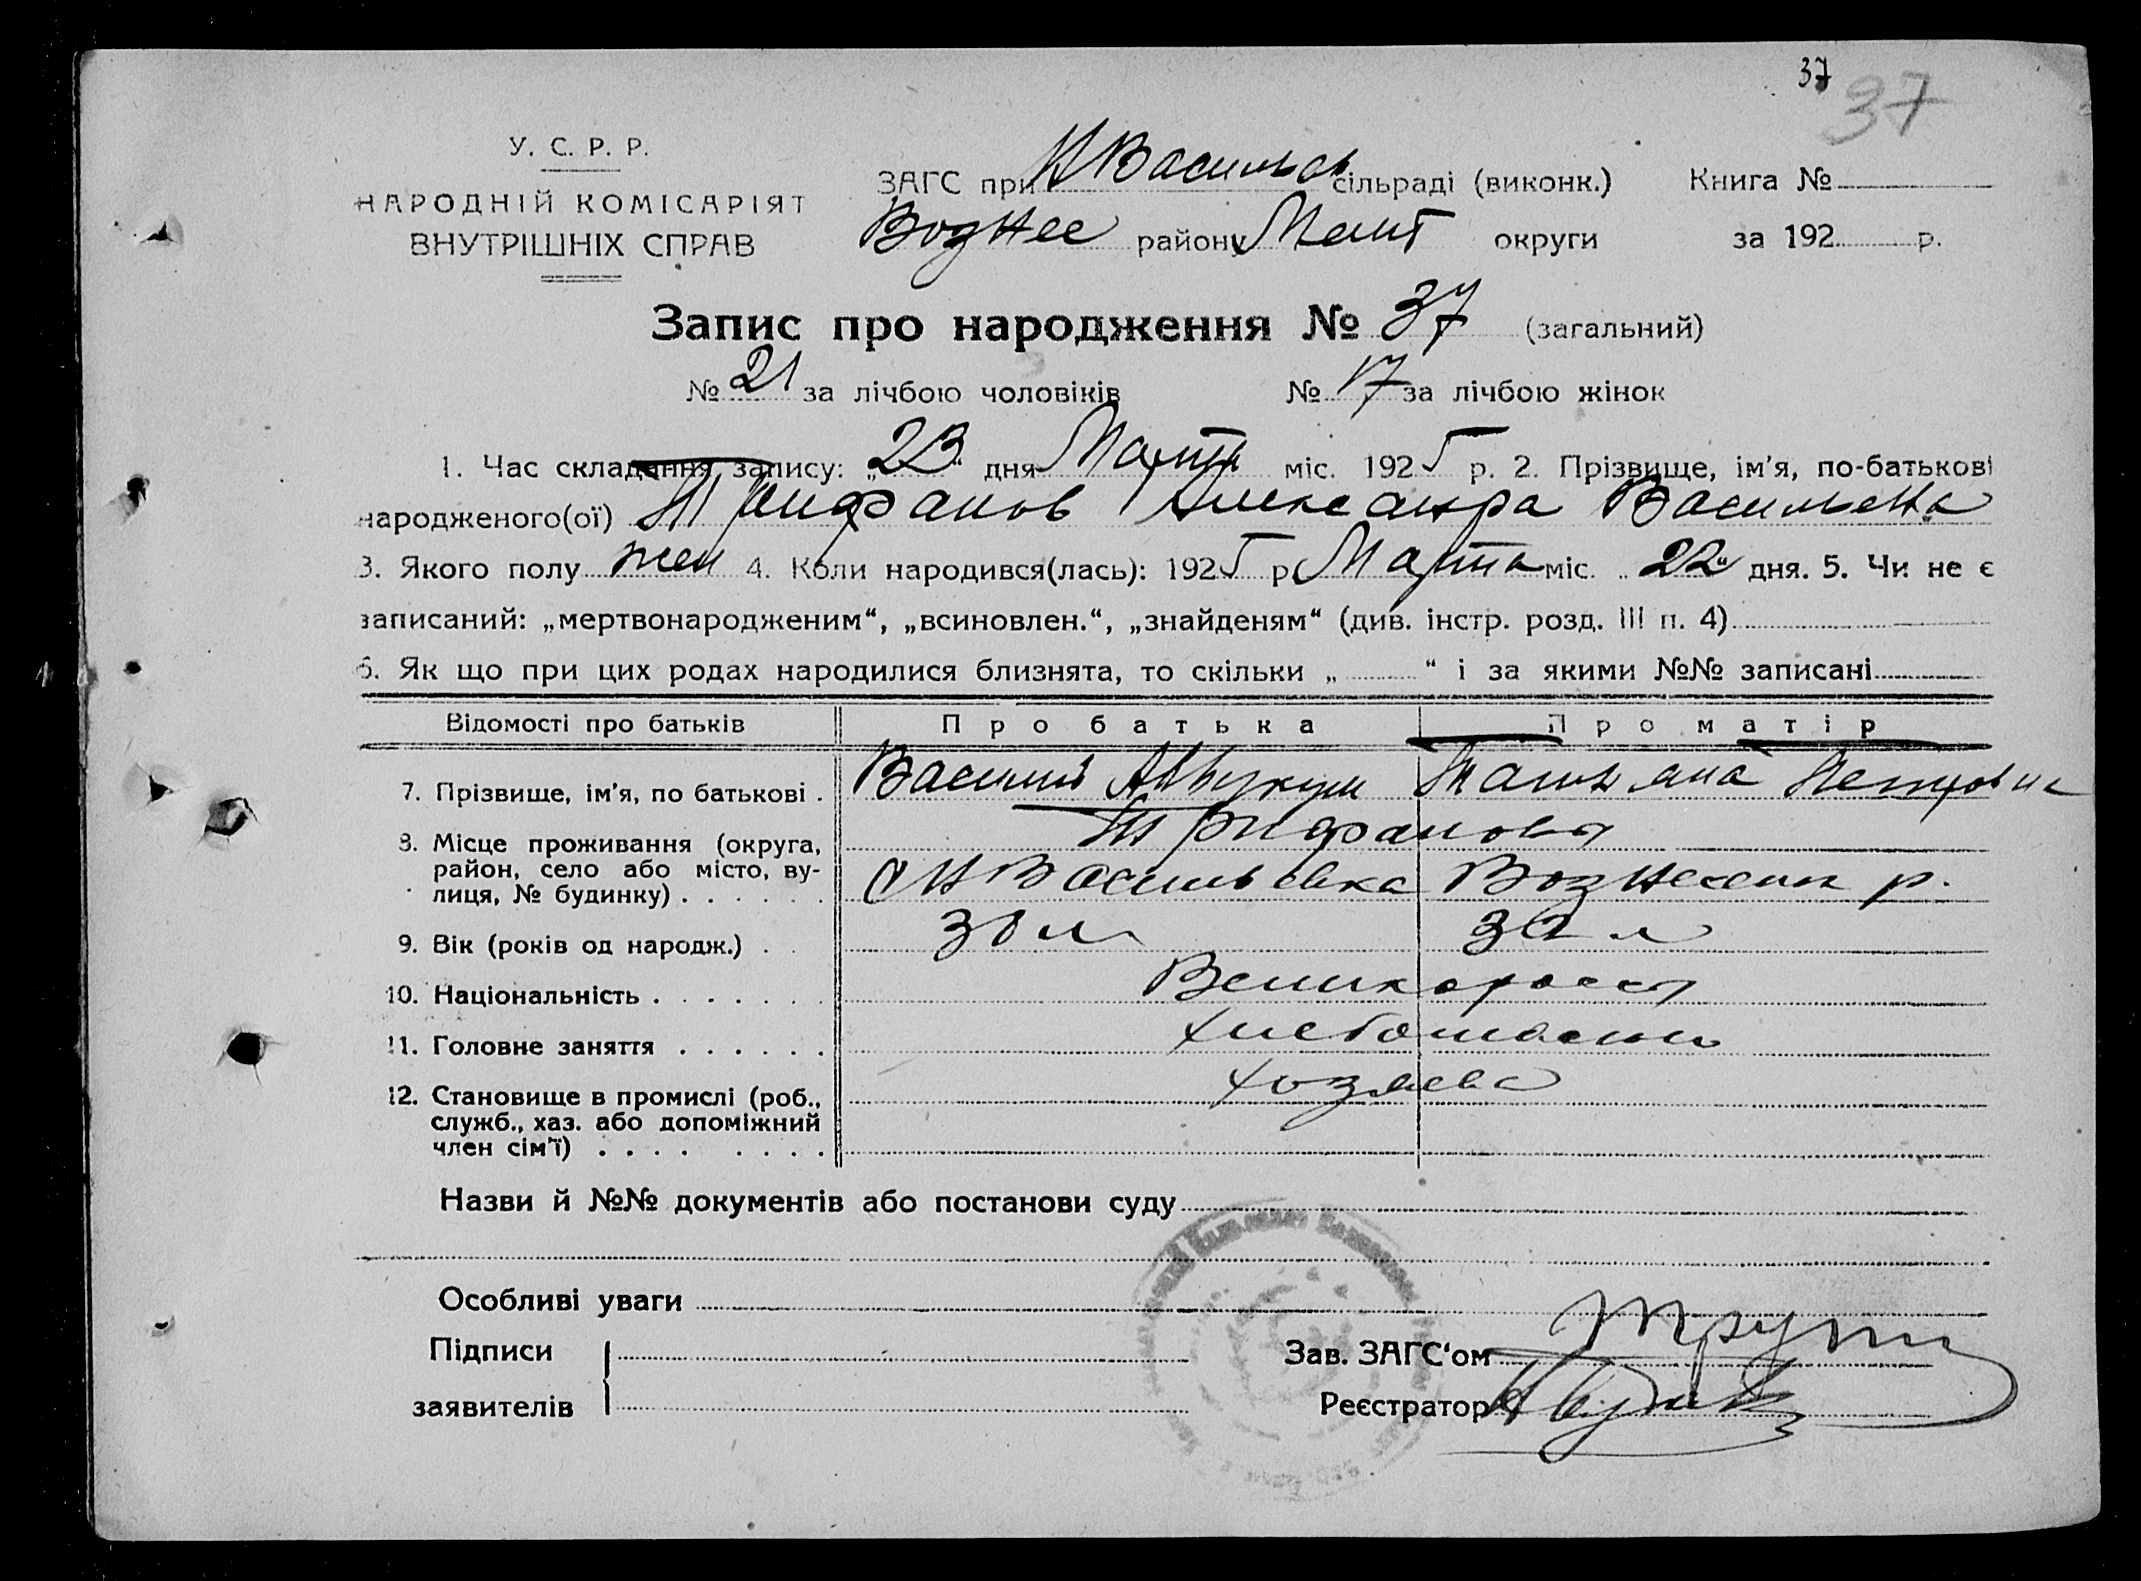 37 37
У. С. Р. Р.
НАРОДНІЙ КОМІСАРІЯТ
ВНУТРІШНІХ СПРАВ
ЗАГС при Н Васильев сільраді (виконк.) Книга №
Вознес району Мелит округи за 192 р.
Запис про народження № 37 (загальний)
№ 21 за лічбою чоловіків № 17 за лічбою жінок
1. Час складання запису: „23“ дня Марта міс. 1925 р. 2. Прізвище, ім'я, по-батькові
народженого(ої) Трифанов Александра Васильевна
3. Якого полу жен 4. Коли народився(лась): 1925 р Марта міс. „22“ дня. 5. Чи не є
записаний: „мертвонародженим“, „всиновлен.“, „знайденям“ (див. інстр. розд. III п. 4)
6. Як що при цих родах народилися близнята, то скільки „ “ і за якими №№ записані
Відомості про батьків Про батька Про матір
7. Прізвище, ім'я, по батькові . Василий Аввукум Татьяна Петровна
Трифановы
8. Місце проживання (округа,
район, село або місто, ву-
лиця, № будинку) . . . . . . Н Васильевка Вознесенк р.
9. Вік (років од народж.) . . л л
10. Національність . . . . . . . Великоросы
11. Головне заняття . . . . . . Хлебопашцы
12. Становище в промислі (роб.,
служб., хаз. або допоміжний
член сім'ї) . . . . . . . . хозяева
Назви й №№ документів або постанови суду
Особливі уваги
Підписи
заявителів
Зав. ЗАГС'ом
Реєстратор